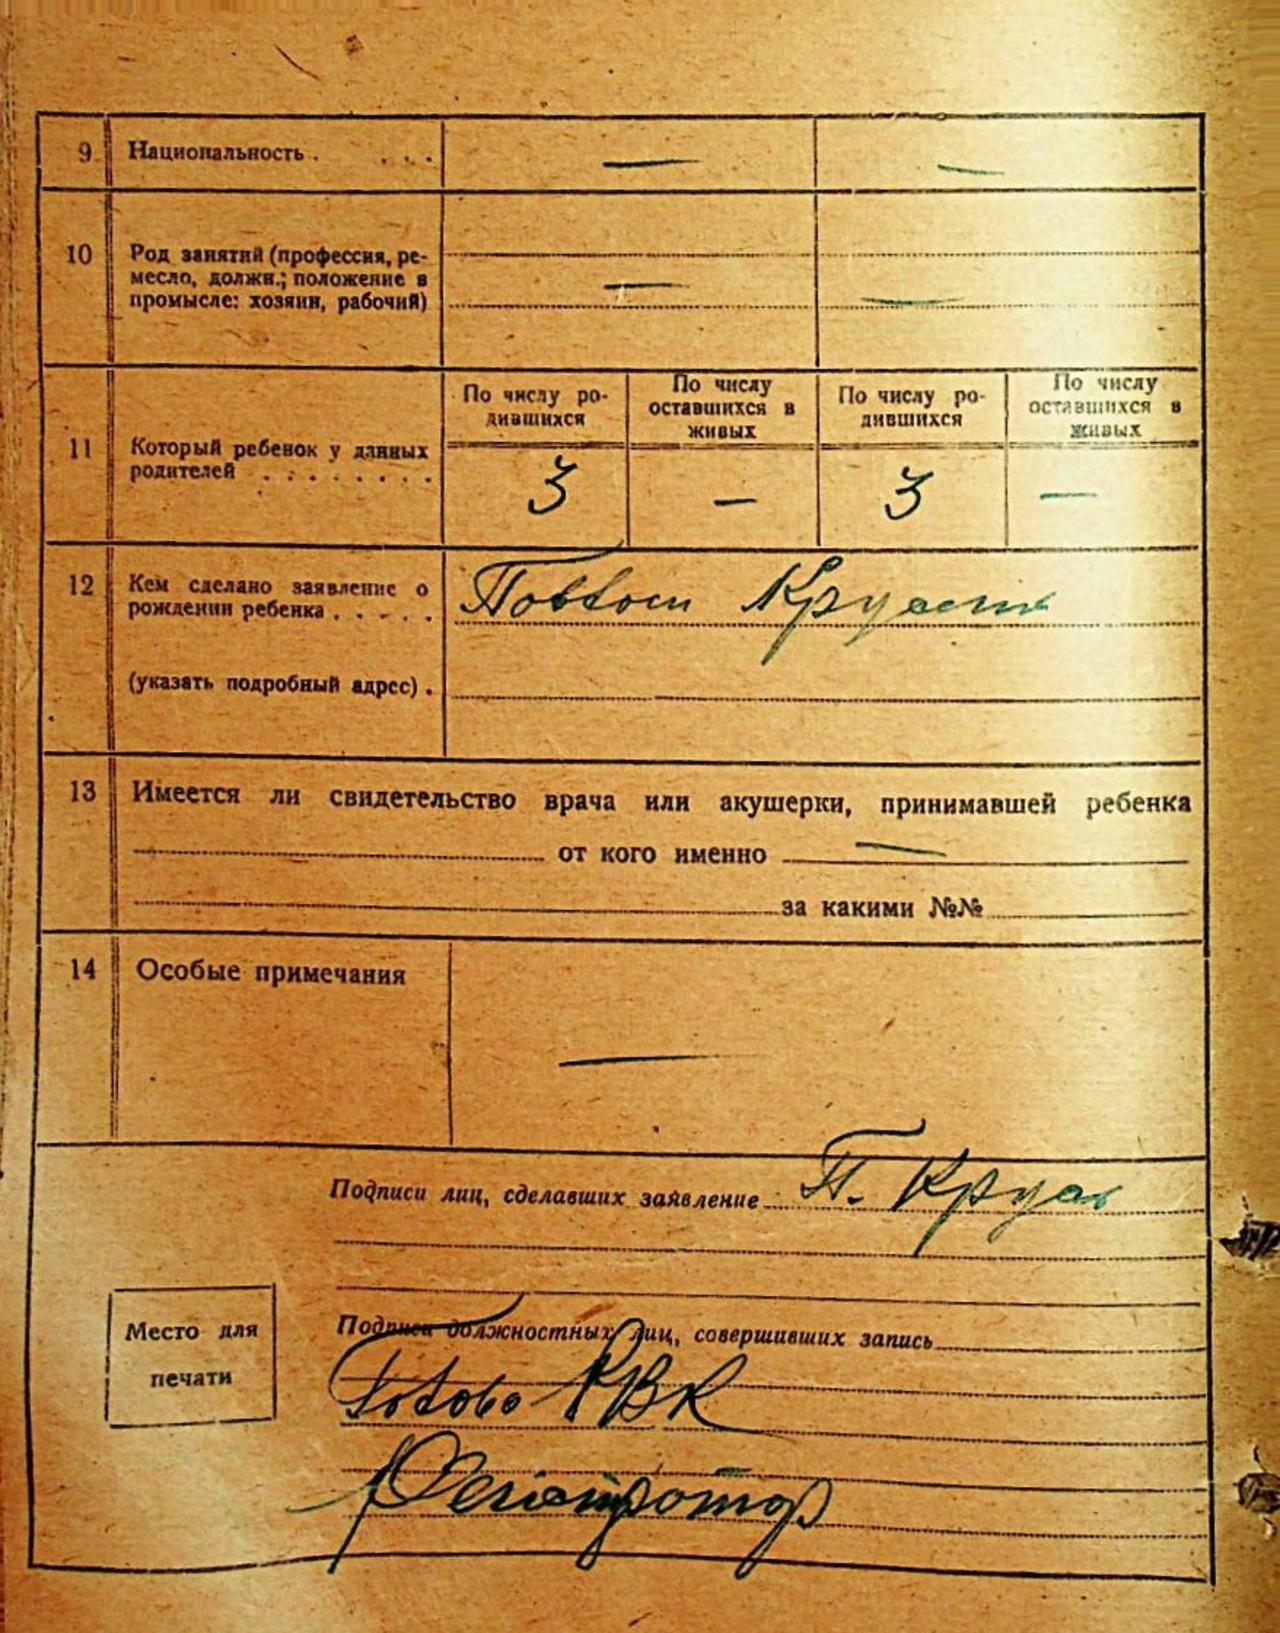 9 Национальность . . . . — —
10 Род занятий (профессия, ре-
месло, должн.; положение в
промысле: хозяин, рабочий) — —
По числу ро-
дившихся
По числу
оставшихся в
живых
По числу ро-
дившихся
По числу
оставшихся в
живых
11 Который ребенок у данных
родителей . . . . . . . .
3 — 3 —
12 Кем сделано заявление о
рождении ребенка . . . . .
(указать подробный адрес) .
13 Имеется ли свидетельство врача или акушерки, принимавшей ребенка
от кого именно —
за какими №№
14 Особые примечания —
Подписи лиц, сделавших заявление П.
Место для
печати
Подписи должностных лиц, совершивших запись